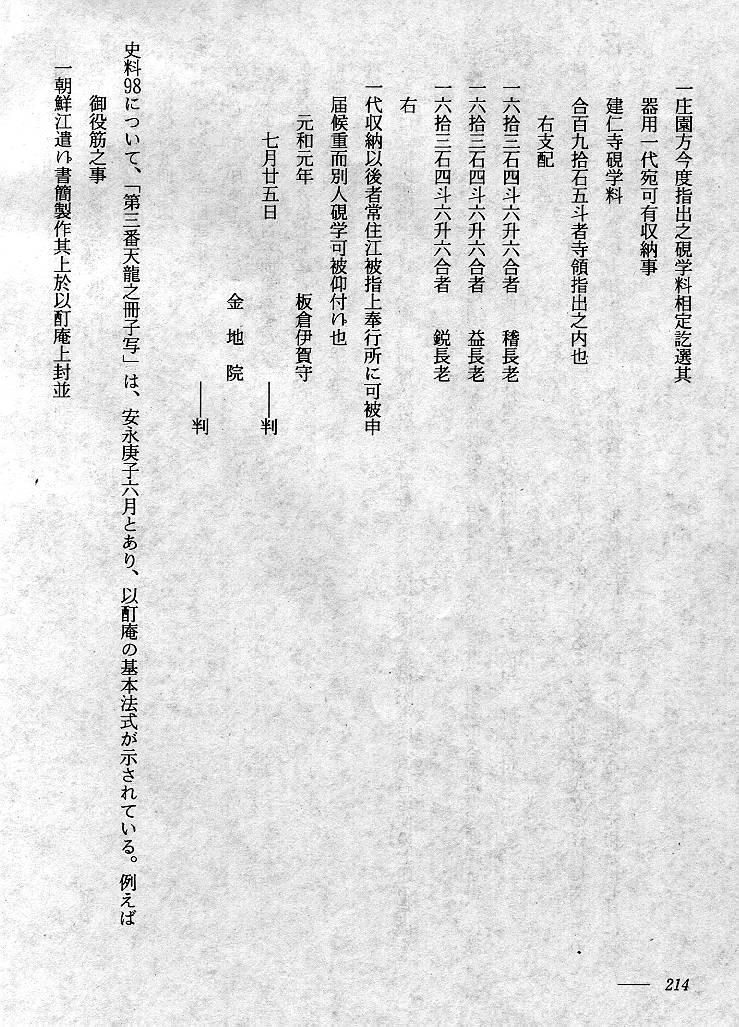 一庄園方今度指出之硯学料相定訖選其
器用一代宛可有収納事
建仁寺硯学料
合百九拾石五斗者寺領指出之内也
右支配
一六拾三石四斗六升六合者　稽長老
一六拾三石四斗六升六合者　益長老
一六拾三石四斗六升六合者　鋭長老
右
一代収納以後者常住江被指上奉行所に可被申
届候重而別人硯学可被仰付ｈ也
元和元年　板倉伊賀守
七月廿五日　――判
金地院
――判
史料98について、「第三番天龍之冊子写」は、安永庚子六月とあり、以酊庵の基本法式が示されている。例えば
御役筋之事
一朝鮮江遣ｈ書簡製作其上於以酊庵上封並
―― 214